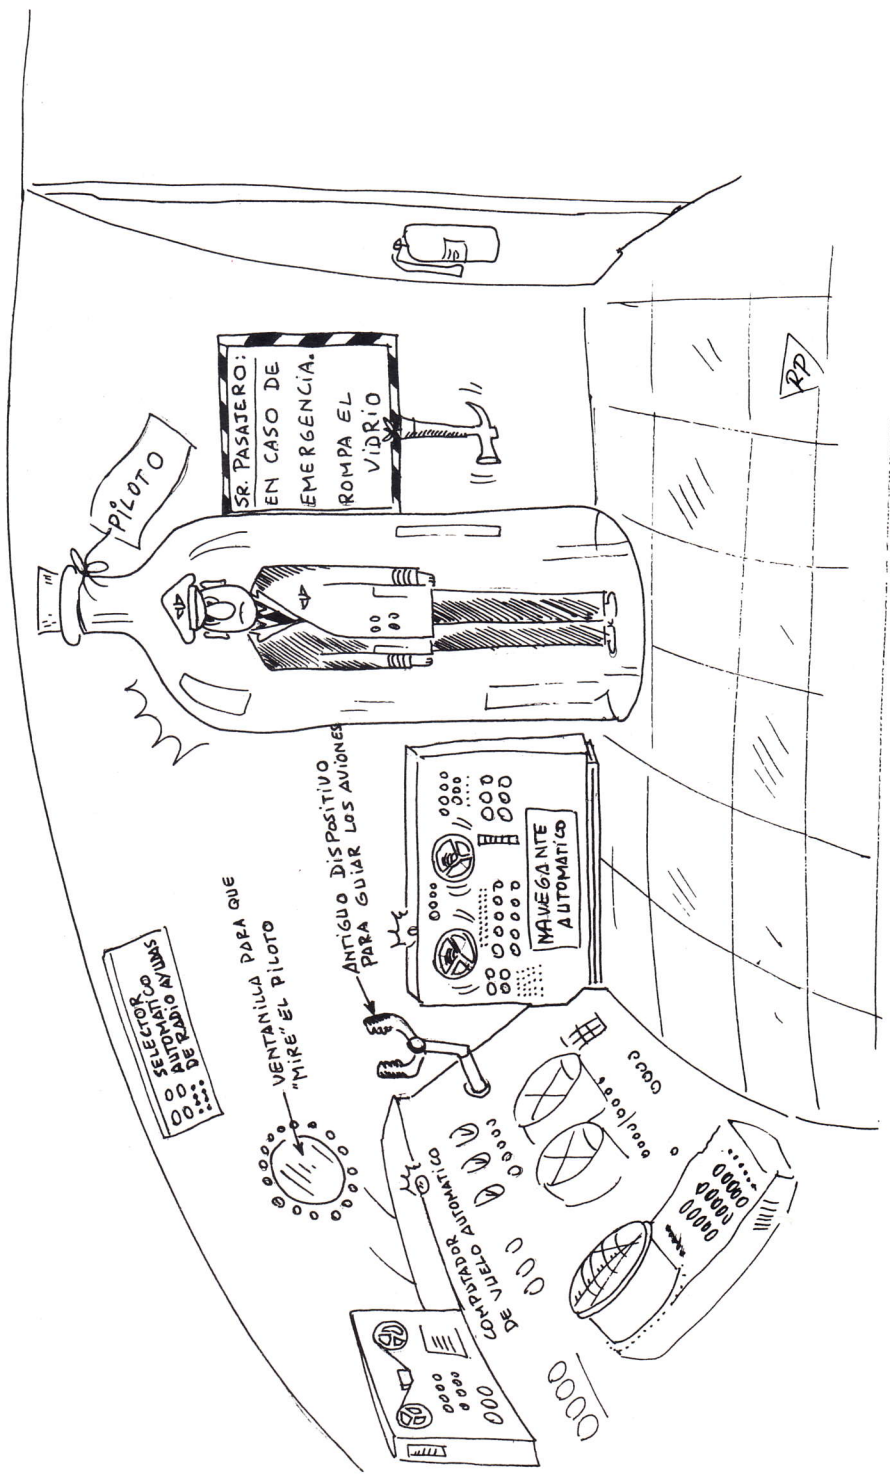 SELECTOR
AUTOMATICO
DE RADIO AYUDAS
VENTANILLA PARA QUE
"MIRE" EL PILOTO
ANTIGUO DISPOSITIVO
PARA GUIAR LOS AVIONES
COMPUTADOR
DE VUELO AUTOMATICO
NAVEGANTE
AUTOMATICO
PILOTO
SR. PASAJERO:
EN CASO DE
EMERGENCIA.
ROMPA EL
VIDRIO
RP